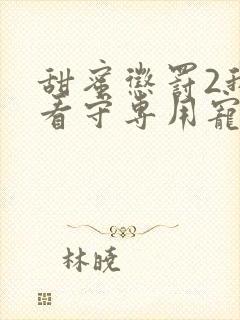 甜蜜惩罚2我
看守专用宠
林晓